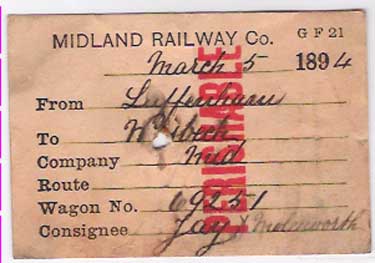 MIDLAND RAILWAY Co. G F 21
March 5 1894
From Luffenham
To Wisbech
Company Mid
Route
Wagon No. 69251
Consignee Jay & Molesworth
PERISHABLE